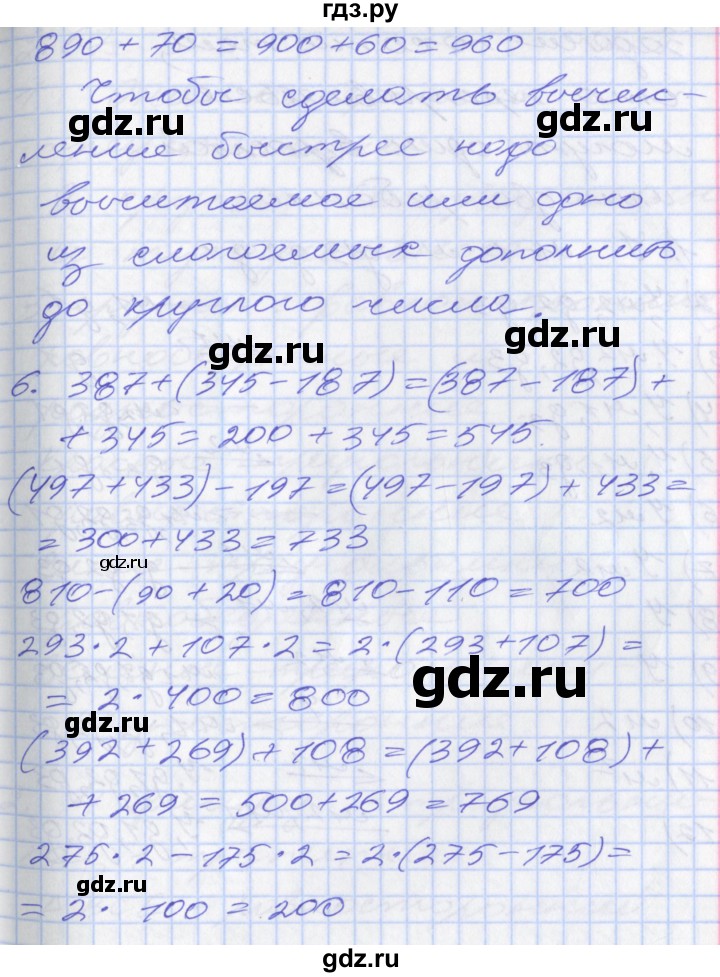 гдз.ру
890 + 70 = 900 + 60 = 960
Чтобы сделать вычис-
gdz.ru gdz.ru
ление быстрее надо
вычитаемое или одно
из слогаемых дополнить
gdz.ru gdz.ru
до круглого числа.
gdz.ru gdz.ru
6. 387 + (345 - 187) = (387 - 187) +
+ 345 = 200 + 345 = 545.
(497 + 433) - 197 = (497 - 197) + 433 =
= 300 + 433 = 733
gdz.ru gdz.ru
810 - (90 + 20) = 810 - 110 = 700
293 · 2 + 107 · 2 = 2 · (293 + 107) =
= 2 · 400 = 800
gdz.ru gdz.ru
(392 + 269) + 108 = (392 + 108) +
+ 269 = 500 + 269 = 769
275 · 2 - 175 · 2 = 2 · (275 - 175) =
gdz.ru gdz.ru
= 2 · 100 = 200
gdz.ru